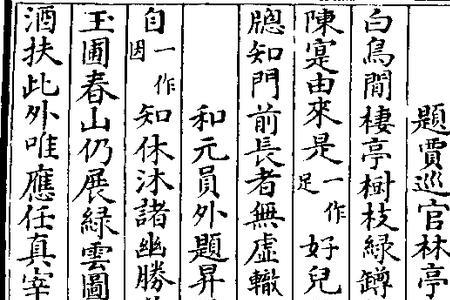 題賈巡官林亭
白鳥閒棲亭樹枝綠罇
陳寔由來是一作足好兒
牕知門前長者無虛轍
和元員外題昇
自一作因知休沐諸幽勝
玉圃春山仍展綠雲圖
酒扶此外唯應任真宰